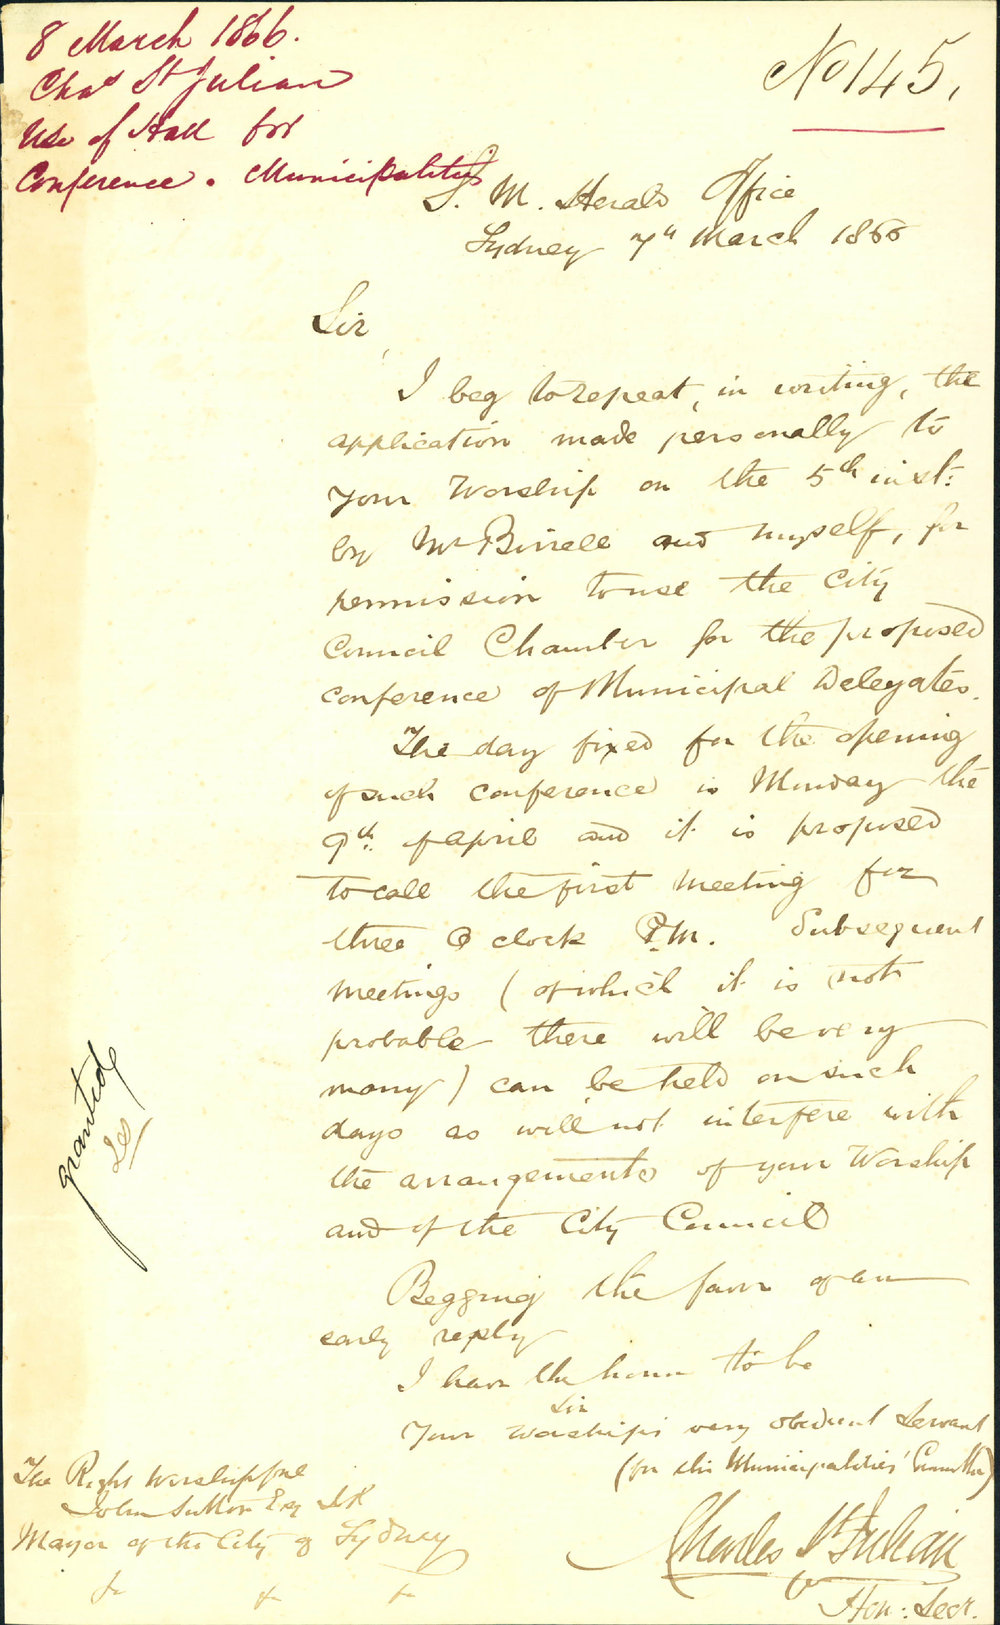 8 March 1866.
Chas St Julian
Use of Hall for
Conference. Municipalities
No 145.
S. M. Herald Office
Sydney 7th March 1866
Sir,
I beg to repeat, in writing, the
application made personally to
Your Worship on the 5th inst:
by Mr Birrell and myself, for
permission to use the City
Council Chamber for the proposed
conference of Municipal Delegates.
The day fixed for the opening
of such conference is Monday the
9th of April and it is proposed
to call the first meeting for
three O clock P.M. Subsequent
meetings (of which it is not
probable there will be very
many) can be held on such
days as will not interfere with
the arrangements of your Worship
and of the City Council
Begging the favor of an
early reply
I have the honor to be
Sir
Your Worship's very obedient Servant
(for the Municipalities' Committee)
Charles St Julian
Hon: Secr.
The Right Worshipful
John Sutton Esq
Mayor of the City of Sydney
granted